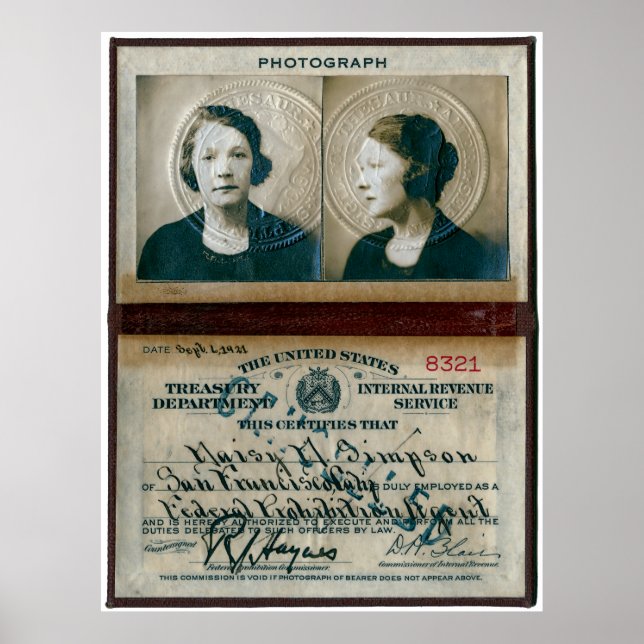 PHOTOGRAPH
THE SAURY
DATE Sept. 1, 1921
8321
THE UNITED STATES
TREASURY DEPARTMENT
INTERNAL REVENUE SERVICE
THIS CERTIFIES THAT
Daisy M. Simpson
OF San Francisco Calif IS DULY EMPLOYED AS A
Federal Prohibition Agent
AND IS HEREBY AUTHORIZED TO EXECUTE AND PERFORM ALL THE
DUTIES DELEGATED TO SUCH OFFICERS BY LAW.
Countersigned
R. A. Haynes
D. H. Blair
Federal Prohibition Commissioner.
Commissioner of Internal Revenue.
THIS COMMISSION IS VOID IF PHOTOGRAPH OF BEARER DOES NOT APPEAR ABOVE.